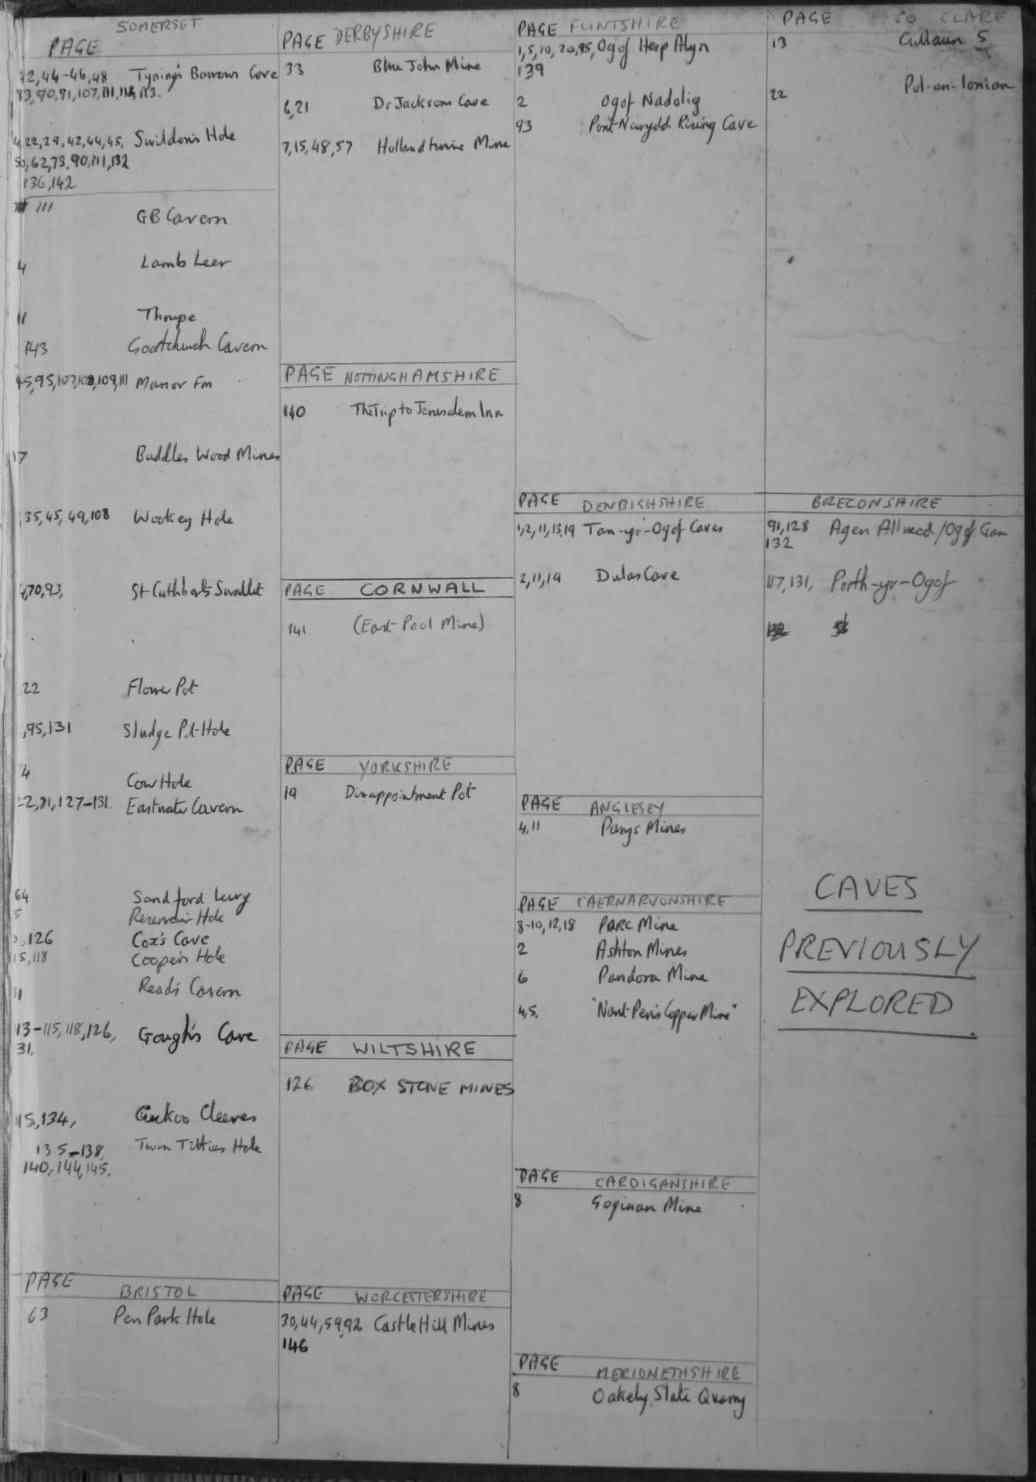 SOMERSET
PAGE
42,44-46,48 Tyning's Barrows Cave
83,90,91,107,111,
4,22,29,42,44,45, Swildon's Hole
50,62,75,90,111,132
136,142
111
GB Cavern
4 Lamb Leer
11 Thrupe
143 Goatchurch Cavern
Manor Fm
17 Buddles Wood Mines
35,45,49,108 Wookey Hole
70,93, St Cuthbert's Swallet
22 Flower Pot
,95,131 Sludge Pit Hole
4 Cow Hole
Eastwater Cavern
64 Sandford Levy
5 Reservoir Hole
,126 Cox's Cave
15,118 Cooper's Hole
11 Read's Cavern
13-115,118,126, Gough's Cave
31.
115,134, Cuckoo Cleeves
135-138, Twin Titties Hole
140,144,145.
PAGE BRISTOL
63 Pen Park Hole
PAGE DERBYSHIRE
33 Blue John Mine
6,21 Dr Jackson Cave
7,15,48,57 Hollandtwine Mine
PAGE NOTTINGHAMSHIRE
140 The Trip to Jerusalem Inn
PAGE CORNWALL
141 (East Pool Mine)
PAGE YORKSHIRE
19 Disappointment Pot
PAGE WILTSHIRE
126 BOX STONE MINES
PAGE WORCESTERSHIRE
30,44,59,92 Castle Hill Mines
146
PAGE FLINTSHIRE
1,5,10,20,85, Ogof Hesp Alyn
139
2 Ogof Nadolig
93 Pont-Newydd Rising Cave
PAGE DENBIGHSHIRE
1,2,11,13,19 Tan-yr-Ogof Caves
2,11,19 Dulas Cave
PAGE ANGLESEY
4,11 Parys Mines
PAGE CAERNARVONSHIRE
8-10,12,18 PARC Mine
2 Ashton Mines
6 Pandora Mine
4,5. "Nant Peris Copper Mine"
PAGE CARDIGANSHIRE
8 Goginan Mine
PAGE MERIONETHSHIRE
8 Oakely Slate Quarry
PAGE CO CLARE
13 Cullaun 5
22 Pol-an-Ionian
BRECONSHIRE
91,128 Agen Allwedd/Ogof Gam
132
117,131, Porth-yr-Ogof
CAVES
PREVIOUSLY
EXPLORED